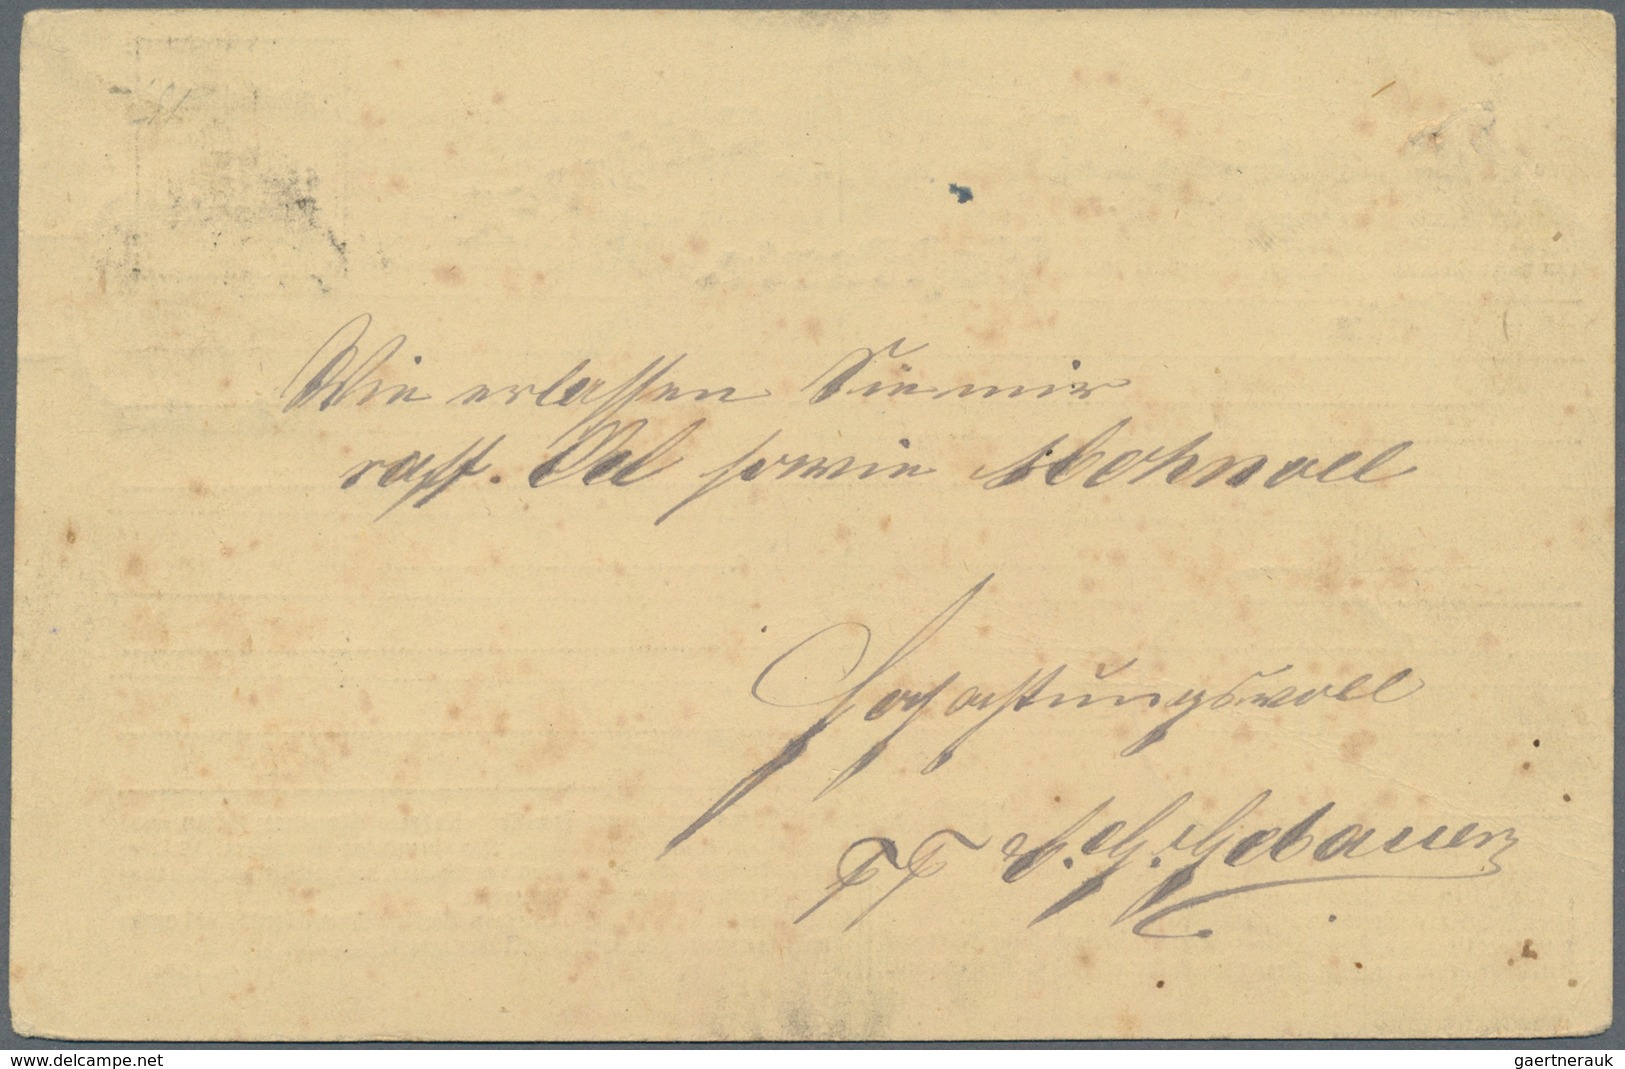 Wie erlassen Sie mir
raff. Oel sowie Mohnoel
Hochachtungsvoll
Gebauer
www.delcampe.net
gaertnerauk